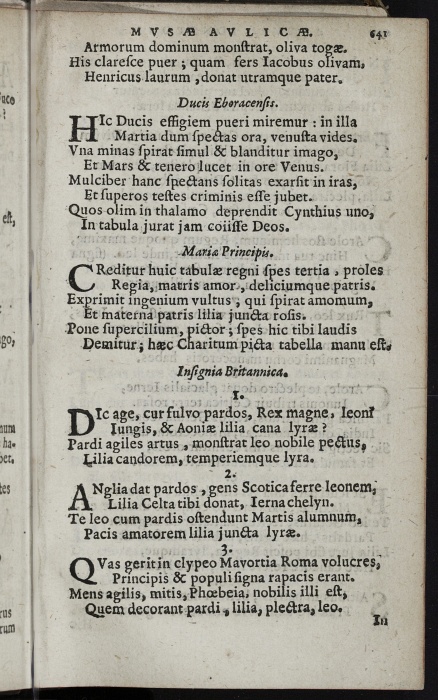 MVSÆ AVLICÆ. 641
Armorum dominum monſtrat, oliva togæ.
His clareſce puer ; quam fers Iacobus olivam,
Henricus laurum , donat utramque pater.
Ducis Eboracenſis.
HIc Ducis effigiem pueri miremur : in illa
Martia dum ſpectas ora, venuſta vides.
Vna minas ſpirat ſimul & blanditur imago,
Et Mars & tenero lucet in ore Venus.
Mulciber hanc ſpectans ſolitas exarſit in iras,
Et ſuperos teſtes criminis eſſe jubet.
Quos olim in thalamo deprendit Cynthius uno,
In tabula jurat jam coiiſſe Deos.
Mariæ Principis.
CReditur huic tabulæ regni ſpes tertia , proles
Regia, matris amor , deliciumque patris.
Exprimit ingenium vultus , qui ſpirat amomum,
Et materna patris lilia juncta roſis.
Pone ſupercilium, pictor ; ſpes hic tibi laudis
Demitur ; hæc Charitum picta tabella manu eſt.
Inſignia Britannica.
1.
DIc age, cur fulvo pardos, Rex magne, leoni
Iungis, & Aoniæ lilia cana lyræ ?
Pardi agiles artus , monſtrat leo nobile pectus,
Lilia candorem, temperiemque lyra.
2.
ANglia dat pardos , gens Scotica ferre leonem,
Lilia Celta tibi donat, Ierna chelyn.
Te leo cum pardis oſtendunt Martis alumnum,
Pacis amatorem lilia juncta lyræ.
3.
QVas gerit in clypeo Mavortia Roma volucres,
Principis & populi ſigna rapacis erant.
Mens agilis, mitis, Phœbeia, nobilis illi eſt,
Quem decorant pardi , lilia, plectra, leo.
In